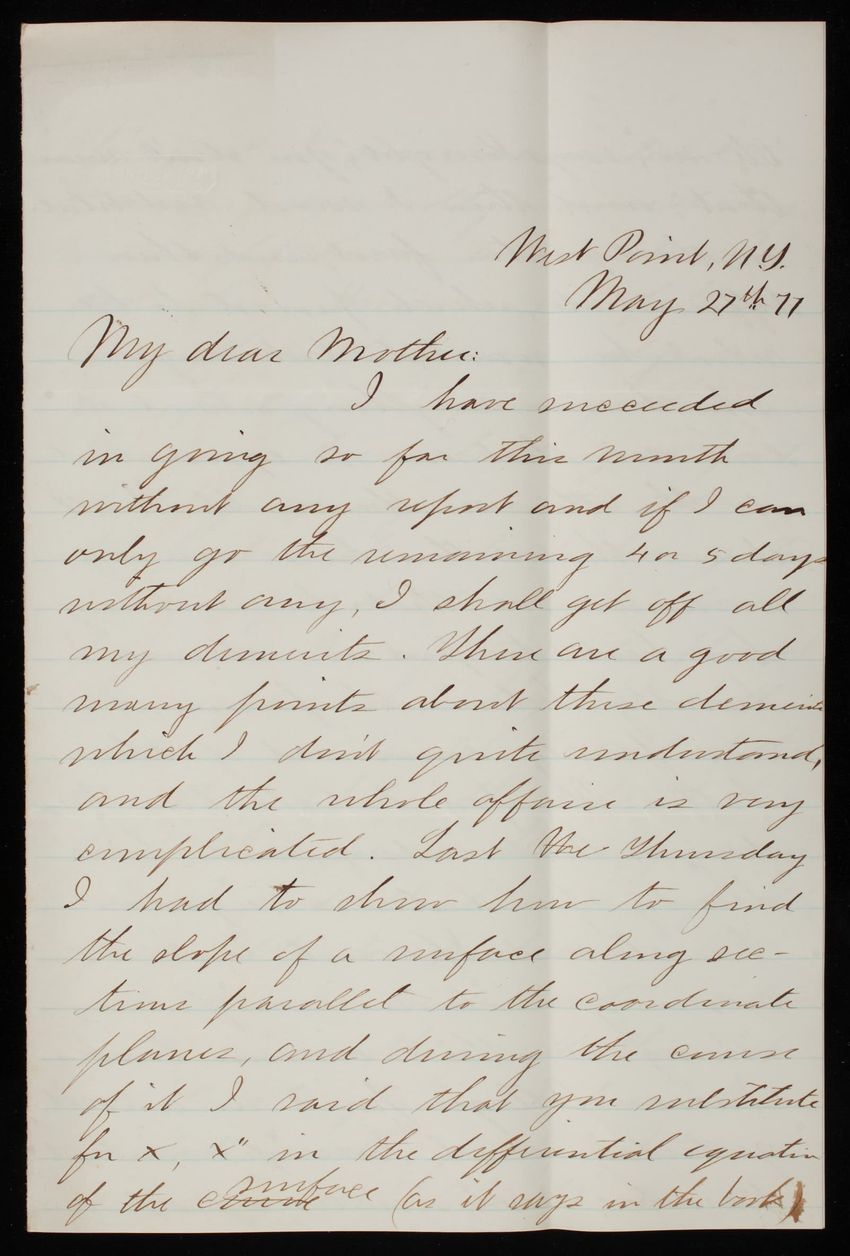 West Point, N.Y.
May 27th 77
My dear Mother:
I have succeeded
in going so far this month
without any report and if I can
only go the remaining 4 or 5 days
without any, I shall get off all
my demerits. There are a good
many points about these demerits
which I don't quite understand,
and the whole affair is very
complicated. Last the Thursday
I had to show how to find
the slope of a surface along sec-
tions parallel to the coordinate
planes, and during the course
of it I said that you substitute
for x, x" in the differential equation
surface
of the curve (as it says in the book)